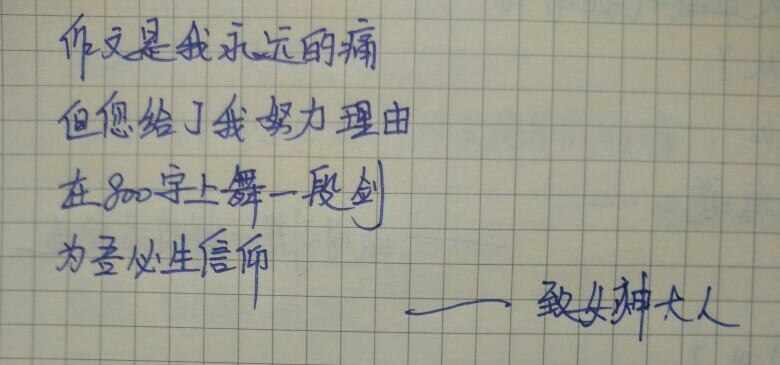 作文是我永远的痛
但您给了我努力理由
在800字上舞一段剑
为吾必生信仰
—— 致女神大人